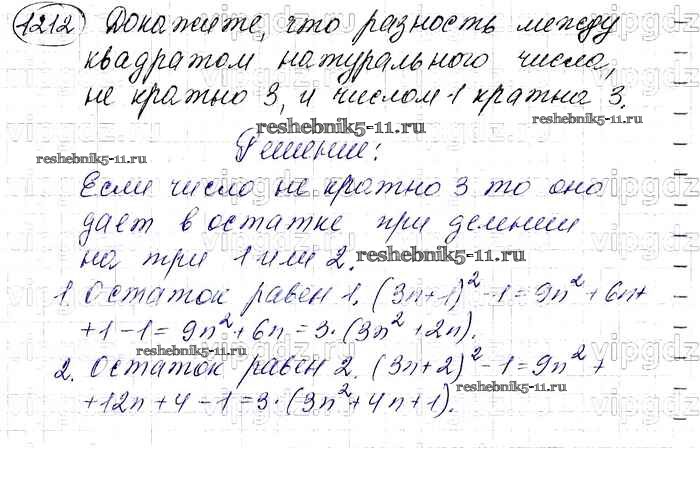 1212 Докажите, что разность между
квадратом натурального числа,
не кратно 3, и числом 1 кратна 3.
reshebnik5-11.ru
reshebnik5-11.ru
Решение:
reshebnik5-11.ru
Если число не кратно 3 то оно
дает в остатке при делении
на три 1 или 2.
reshebnik5-11.ru
1. Остаток равен 1. (3n+1)² -1 = 9n² + 6n+
+1-1 = 9n² + 6n = 3·(3n² + 2n).
reshebnik5-11.ru
2. Остаток равен 2. (3n+2)² -1 = 9n² +
reshebnik5-11.ru
+12n+4-1 = 3·(3n²+4n+1).